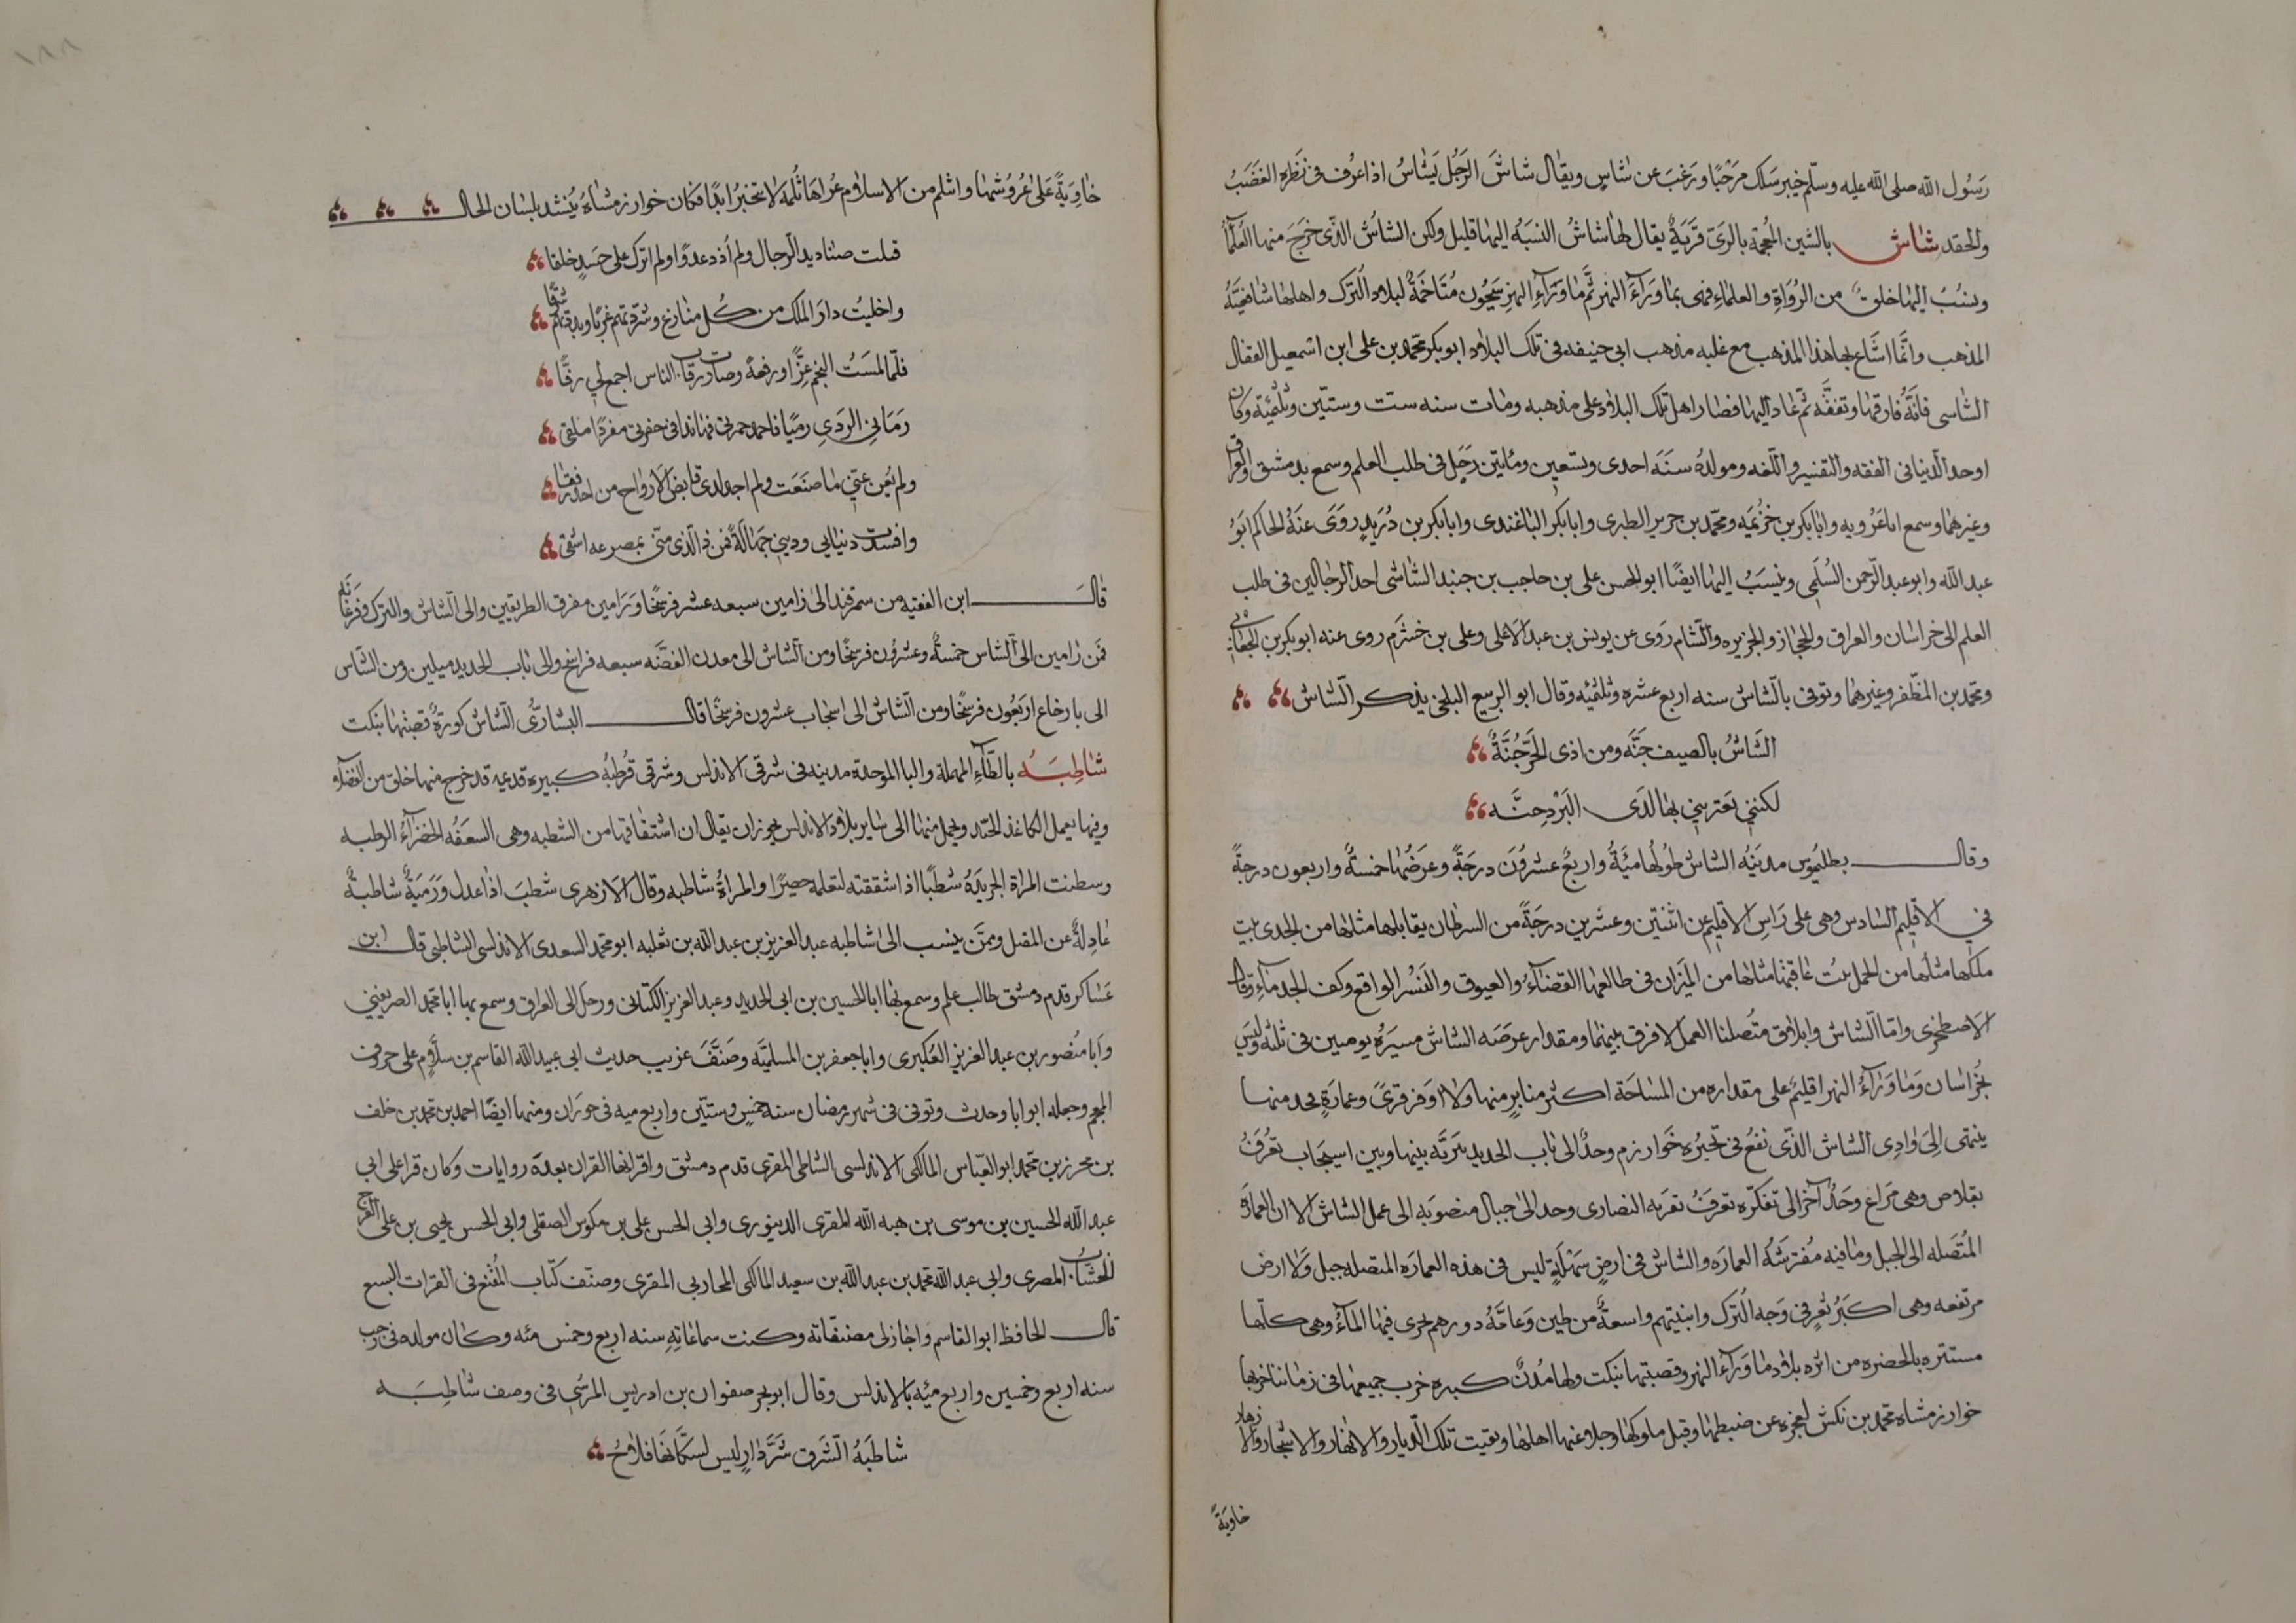 رسول الله صلى الله عليه وسلم خيبر سلك مرحبا ورغب عن شاس ويقال شاش الرجل يشاس اذا عرف فى نظره الغضب
والحقد شاش بالشين المعجمة بالرى قرية يقال لها شاش النسبه اليها قليل ولكن الشاش الذى خرج منها العلمآ
وينسب اليها خلق من الرواة والعلماء فهى بما ورآء النهر ثم ما ورآء النهر سيحون متاخمة لبلاد الترك واهلها شافعية
المذهب وانما اشاع بها هذا المذهب مع غلبه مذهب ابى حنيفه فى تلك البلاد ابو بكر محمد بن على ابن اسمعيل القفال
الشاسى فانه فارقها وتفقه ثم عاد اليها فصار اهل تلك البلاد على مذهبه ومات سنه ست وستين وثلثمئة وكان
اوحد الدنيا فى الفقه والتفسير واللغه ومولده سنه احدى وتسعين ومايتين رحل فى طلب العلم وسمع بدمشق والعراق
وغيرهما وسمع ابا عروبه وابا بكر بن خزيمه ومحمد بن جرير الطبرى وابا بكر الباغندى وابا بكر بن دريد روى عنه الحاكم ابو
عبد الله وابو عبد الرحمن السلمى وينسب اليها ايضا ابو الحسن على بن حاجب بن جنيد الشاشى احد الرحالين فى طلب
العلم الى خراسان والعراق والحجاز والجزيره والشام روى عن يونس بن عبد الاعلى وعلى بن خشرم روى عنه ابو بكر بن الجعابى
ومحمد بن المظفر وغيرهما وتوفى بالشاش سنه اربع عشره وثلثمئه وقال ابو الربيع البلخى يذكر الشاش
الشاش بالصيف جنه ومن اذى الحر جنة
لكننى يعترينى بها لدى البرد حنه
وقال بطليموس مدينه الشاش طولها مئة واربع عشرون درجة وعرضها خمسة واربعون درجة
فى الاقليم السادس وهى على راس الاقليم عن اثنتين وعشرين درجة من السرطان يقابلها مثلها من الجدى بيت
ملكها مثلها من الحمل بيت عاقبتها مثلها من الميزان فى طالعها القضآء والعيوق والنسر الواقع وكف الجدمآء وقال
الاصطخرى واما الشاش وايلاق متصلنا العمل لا فرق بينهما ومقدار عرضه الشاش مسيرة يومين فى ثلثه وليس
بخراسان وما ورآء النهر اقليم على مقداره من المساحة اكثر منابر منها ولا اوفر قرى وعمارة يحد منها
ينتهى الى وادى الشاش الذى نفع فى بحيره خوارزم وحد الى باب الحديد بتربه بينها وبين اسبيجاب تعرف
بقلاص وهى مراع وحد آخر الى تفكره تعرف تقربه النصارى وحد الى جبال منضوبه الى عمل الشاش الا ان العمارة
المتصله الى الجبل وما فيه مفترشه العماره والشاش فى ارض سهلة ليس فى هذه العماره المتصله جبل ولا ارض
مرتفعه وهى اكبر ثغر فى وجه الترك وابنيتهم واسعة من طين وعامة دورهم يجرى فيها المآء وهى كلها
مستتره بالخضره من انزه بلاد ما ورآء النهر وقصبتها بنكت ولها مدن كبيره خرب جميعها فى زماننا خربها
خوارزمشاه محمد بن تكش لعجزه عن ضبطها وقتل ملوكها وجلا عنها اهلها وبقيت تلك الديار والانهار والاشجار والازهار
خاوية
خاوية على عروشها واثلم من الاسلام عراها ثلمة لا تنجبر ابدا فكان خوارزمشاه ينشد بلسان الحال
قتلت صناديد الرجال ولم اذر عدوا ولم اترك على حسد خلقا
واخليت دار الملك من كل منازع وشردتهم غربا وبددتهم شرقا
فلما لمست النجم عزا ورفعة وصارت رقاب الناس اجمع لى رقا
رمانى الردى رميا فاخمد جمرتى فها انذا فى حفرتى مفردا ملقى
ولم يغن عنى ما صنعت ولم اجد لدى قابض الارواح من احد رفقا
وافسدت دنيايى ودينى جهالة فمن ذا الذى منى بمصرعه اشقى
قال ابن الفقيه من سمرقند الى زامين سبعه عشر فرسخا وزامين مفرق الطريقين والى الشاش والترك وفرغانه
فمن زامين الى الشاس خمسة وعشرون فرسخا ومن الشاش الى معدن الفضه سبعه فراسخ والى باب الحديد ميلين ومن الشاس
الى بارخاع اربعون فرسخا ومن الشاش الى اسبحاب عشرون فرسخا قال البشارى الشاش كورة قصبتها بنكت
شاطبه بالطآء المهملة والبا الموحدة مدينه فى شرقى الاندلس وشرقى قرطبة كبيره قديمه قد خرج منها خلق من الفضلآء
وفيها يعمل الكاغد الجيد ويحمل منها الى ساير بلاد الاندلس يجوز ان يقال ان اشتقاقها من الشطبه وهى السعفه الخضرآء الرطبه
وسطبت المراة الجريدة شطبا اذا شققته لتعلمه حصيرا والمراة شاطبه وقال الازهرى شطب اذا عدل ورمية شاطبة
عادلة عن المقتل وممن ينسب الى شاطبه عبد العزيز بن عبد الله بن ثعلبه ابو محمد السعدى الاندلسى الشاطبى قال ابن
عساكر قدم دمشق طالب علم وسمع بها ابا الحسين بن ابى الحديد وعبد العزيز الكتانى ورحل الى العراق وسمع بها ابا محمد الصريفينى
وابا منصور بن عبد العزيز العكبرى وابا جعفر بن المسلميه وصنف غريب حديث ابى عبيد الله القاسم بن سلام على حروف
المعجم وجعله ابوابا وحدث وتوفى فى شهر رمضان سنه خمس وستين واربع ميه فى حوران ومنها ايضا احمد بن محمد بن خلف
بن محرز بن محمد ابو العباس المالكى الاندلسى الشاطى المقرى قدم دمشق واقرا بها القران بعدة روايات وكان قرا على ابى
عبد الله الحسين بن موسى بن هبه الله المقرى الدينورى وابى الحسن على بن مكوس الصقلى وابى الحسن يحيى بن على الفرج
الخشاب المصرى وابى عبد الله محمد بن عبد الله بن سعيد المالكى المحاربى المقرى وصنف كتاب المقنع فى القرات السبع
قال الحافظ ابو القاسم واجاز لى مصنفاته وكتبت سماعاته سنه اربع وخمس مئه وكان مولده فى رجب
سنه اربع وخمسين واربع مئه بالاندلس وقال ابو بحر صفوان بن ادريس المرسى فى وصف شاطبه
شاطبه الشرق شر دار ليس لسكانها فلاح